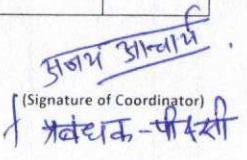 अजय आचार्य
(Signature of Coordinator)
प्रबंधक-पीएसी